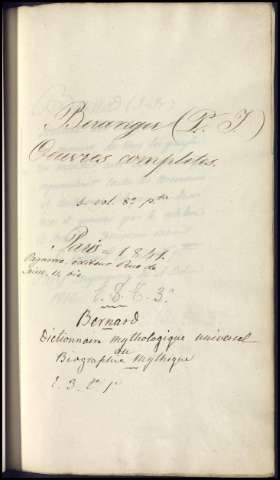 Beranger (P. J.)
Oeuvres completes.
vol. 8º pte
Paris – 1841.
Perrotin, éditeur Rue de
E. 3.
Bernard
Dictionnaire Mythologique universel
ou
Biographie Mythique
E. 3.